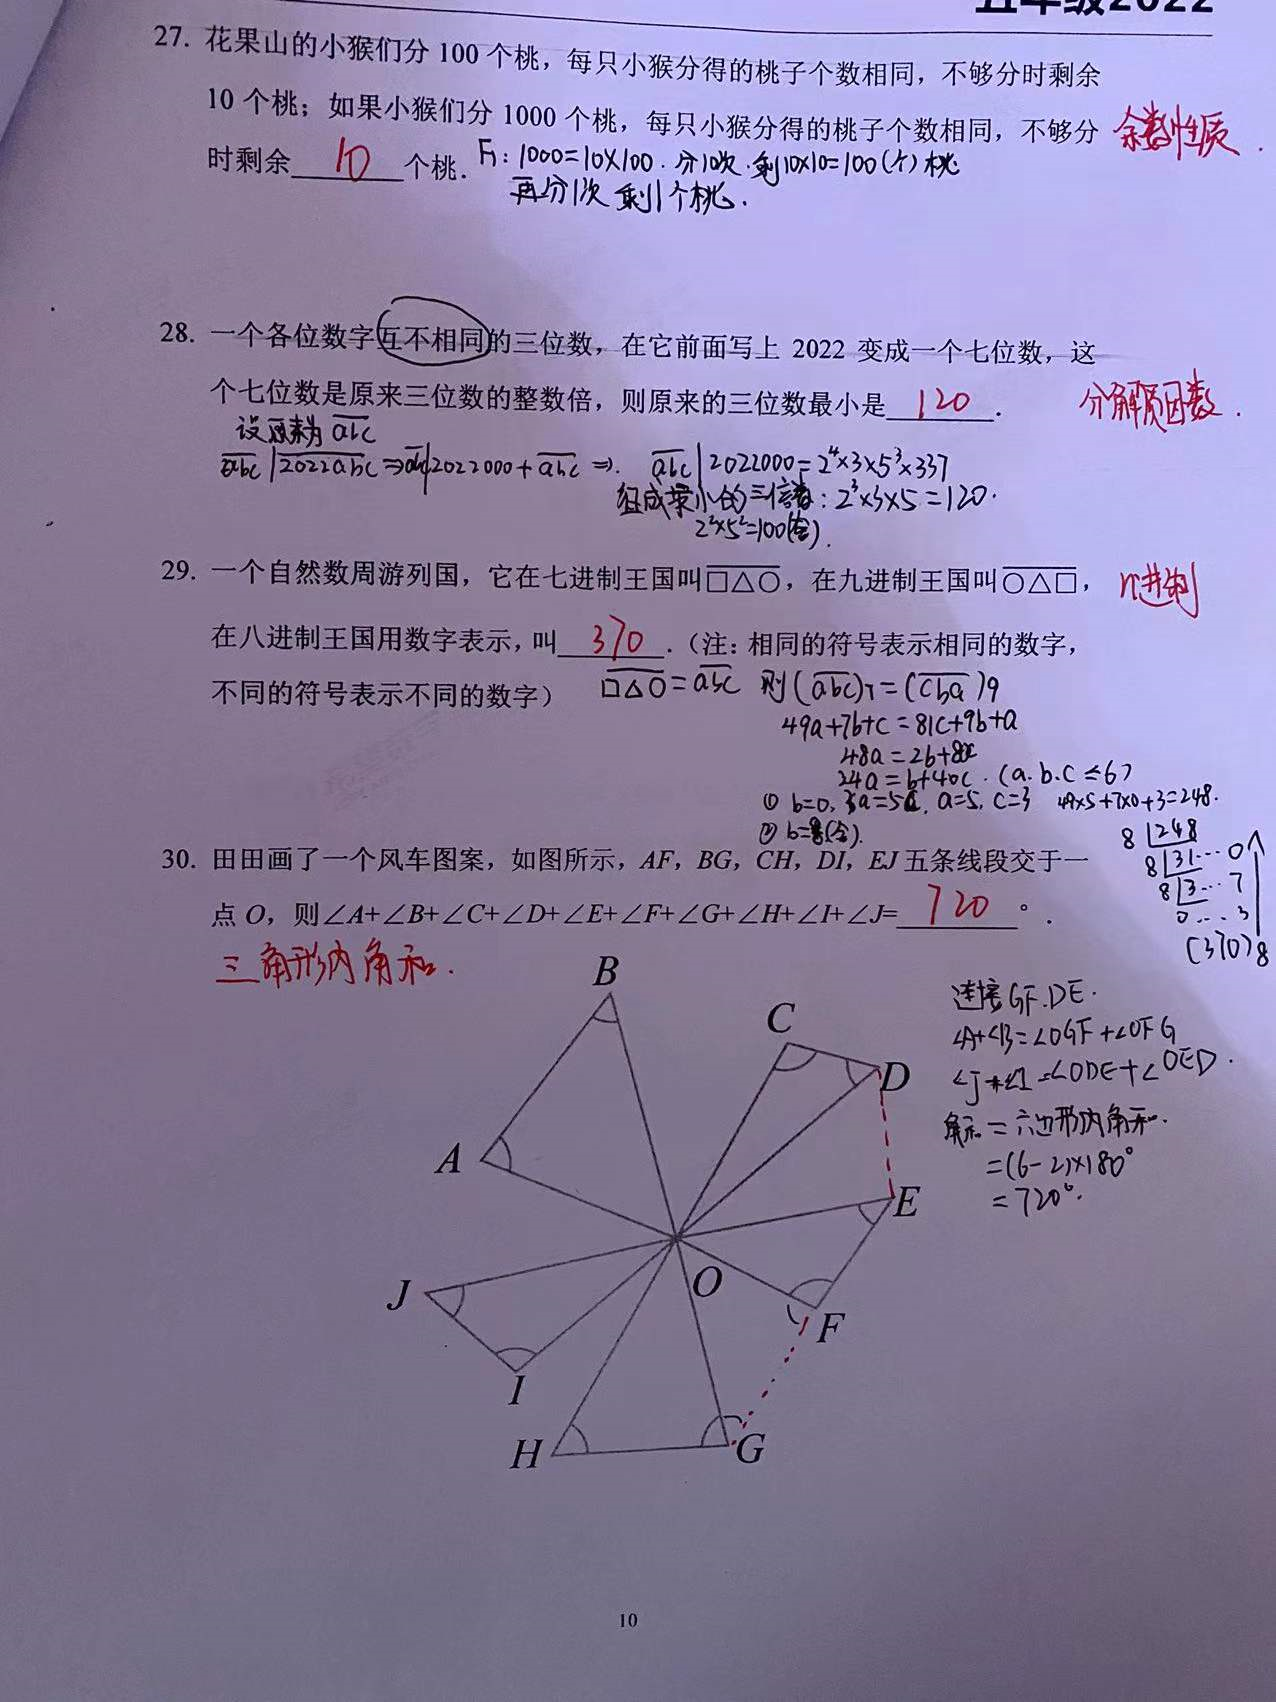 五年级2022
27. 花果山的小猴们分 100 个桃，每只小猴分得的桃子个数相同，不够分时剩余
10 个桃；如果小猴们分 1000 个桃，每只小猴分得的桃子个数相同，不够分
时剩余 10 个桃．
余数性质．
1000=10×100．分10次．剩10×10=100(个)桃
再分1次 剩1个桃．
28. 一个各位数字互不相同的三位数，在它前面写上 2022 变成一个七位数，这
个七位数是原来三位数的整数倍，则原来的三位数最小是 120 ．
分解质因数．
设原来为 abc
abc|2022abc⇒abc|2022000+abc⇒． abc|2022000=2⁴×3×5³×337
组成最小的三位数：2³×3×5=120．
2²×5²=100(舍)．
29. 一个自然数周游列国，它在七进制王国叫□△○，在九进制王国叫○△□，
n进制
在八进制王国用数字表示，叫 370 ．（注：相同的符号表示相同的数字，
不同的符号表示不同的数字）
□△○=abc 则(abc)₇=(cba)9
49a+7b+c=81c+9b+a
48a=2b+80c
24a=b+40c．(a.b.c≤6)
① b=0，3a=5c，a=5，c=3 49×5+7×0+3=248．
② b=8(舍)．
8 248
8 31…0
8 3…7
0…3
(370)8
30. 田田画了一个风车图案，如图所示，AF，BG，CH，DI，EJ 五条线段交于一
点 O，则∠A+∠B+∠C+∠D+∠E+∠F+∠G+∠H+∠I+∠J= 720 °．
三角形内角和．
连接GF.DE．
∠A+∠B=∠OGF+∠OFG
∠J+∠I=∠ODE+∠OED．
角和=六边形内角和．
=(6-2)×180°
=720°．
B
C
D
A
E
O
J
F
I
H
G
10